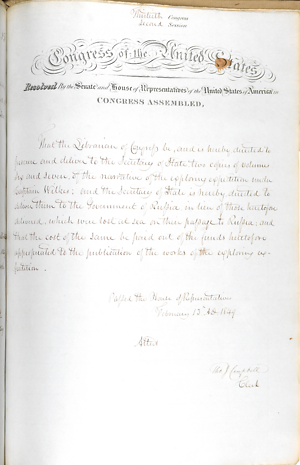 Thirtieth Congress
Second Session
Congress of the United States
Resolved By the Senate and House of Representatives of the United States of America in
CONGRESS ASSEMBLED,
That the Librarian of Congress be, and is hereby directed to
procure and deliver to the Secretary of State two copies of volumes
five and seven, of the narrative of the exploring expedition under
Captain Wilkes; and the Secretary of State is hereby directed to
deliver them to the Government of Russia in lieu of those heretofore
, which were lost at sea on their passage to Russia, and
that the cost of the same be paid out of the funds heretofore
appropriated to the publication of the works of the exploring ex-
pedition.
Passed the House of Representatives
February 12th 1849
Attest
Tho J Campbell
Clerk